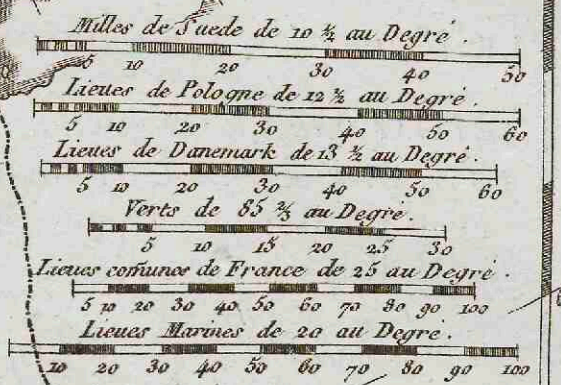 Milles de Suede de 10 ½ au Degré.
5 10 20 30 40 50
Lieues de Pologne de 12 ½ au Degré.
5 10 20 30 40 50 60
Lieues de Danemark de 13 ½ au Degré.
5 10 20 30 40 50 60
Verts de 85 ⅔ au Degré.
5 10 15 20 25 30
Lieues com̃unes de France de 25 au Degré.
5 10 20 30 40 50 60 70 80 90 100
Lieues Marines de 20 au Degre.
10 20 30 40 50 60 70 80 90 100